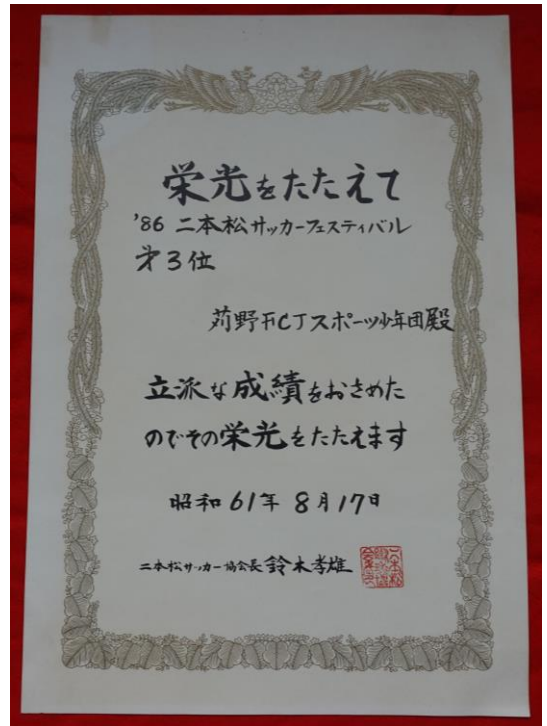 栄光をたたえて
'86 二本松サッカーフェスティバル
才3位
苅野FCJスポーツ少年団殿
立派な成績をおさめた
のでその栄光をたたえます
昭和61年8月17日
二本松サッカー協会長 鈴木孝雄